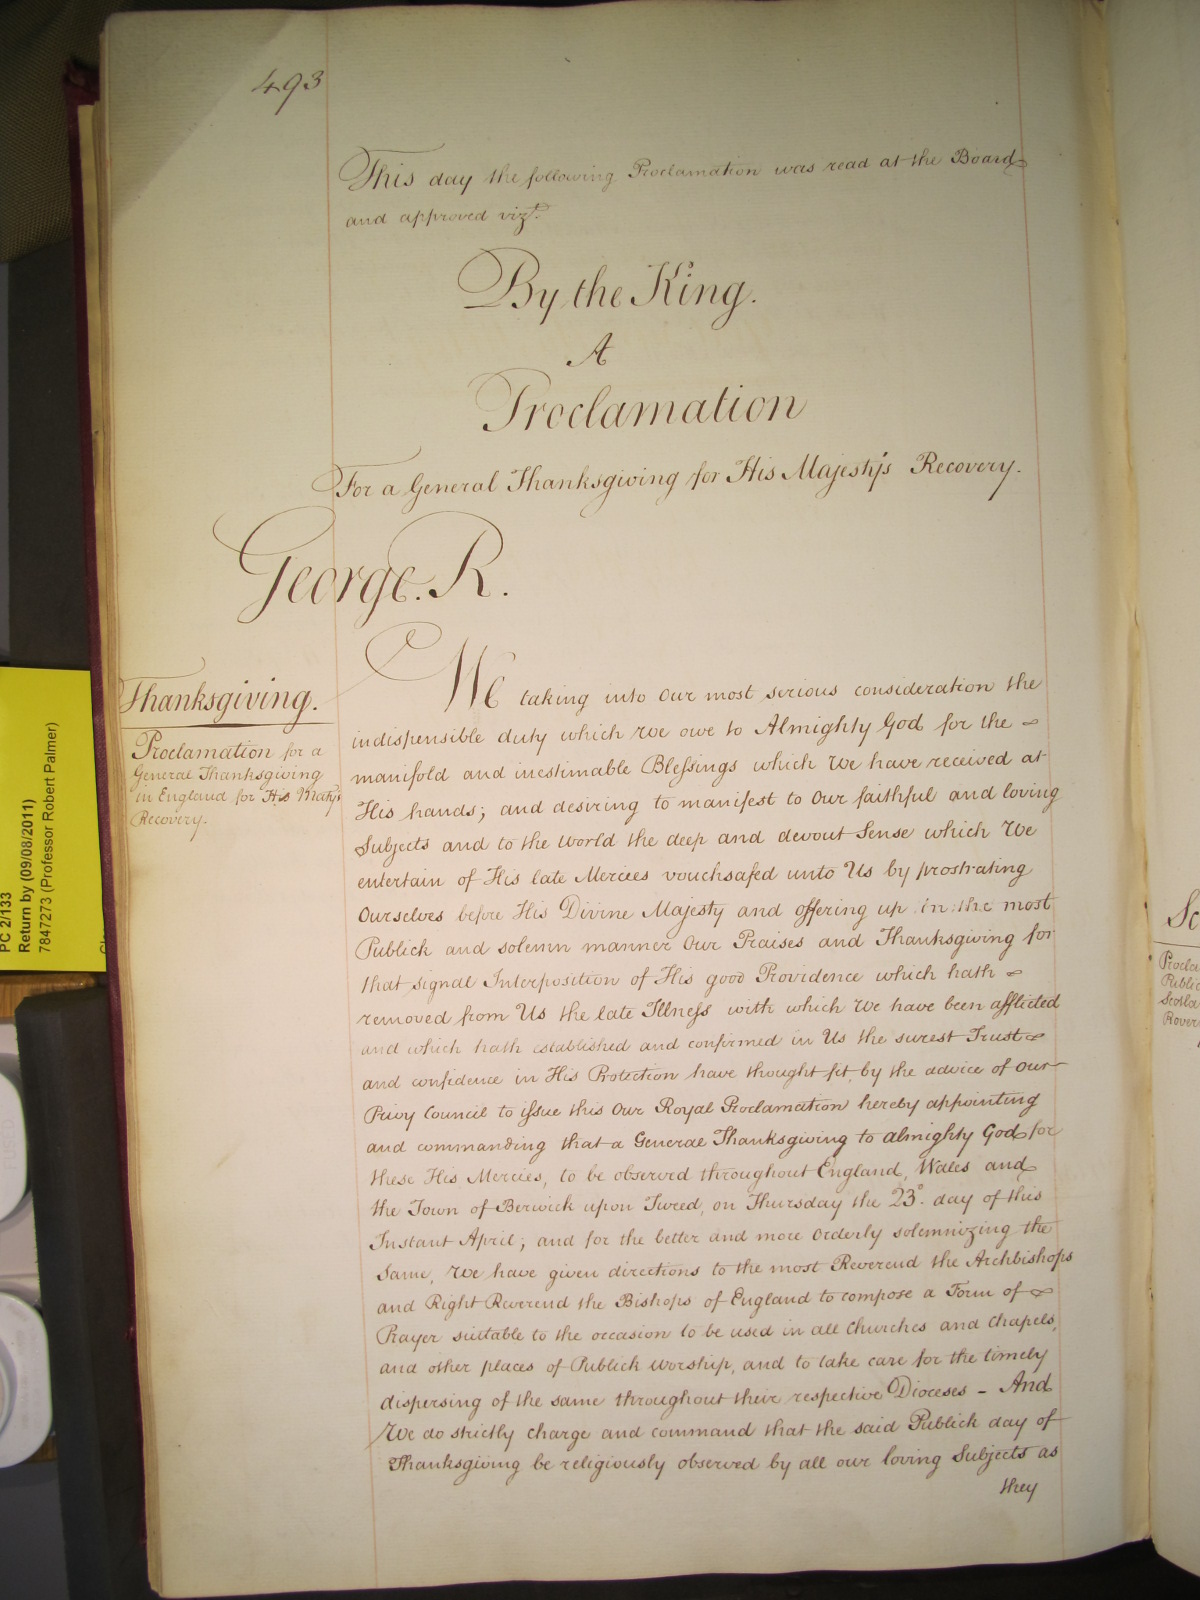 493
This day the following Proclamation was read at the Board
and approved vizt.
By the King.
A
Proclamation
For a General Thanksgiving for His Majesty's Recovery.
George. R.
Thanksgiving.
Proclamation for a
General Thanksgiving
in England for His Matys
Recovery.
We taking into Our most serious consideration the
indispensible duty which We owe to Almighty God for the
manifold and inestimable Blessings which We have received at
His hands; and desiring to manifest to Our faithful and loving
Subjects and to the World the deep and devout Sense which We
entertain of His late Mercies vouchsafed unto Us by prostrating
Ourselves before His Divine Majesty and offering up in the most
Publick and solemn manner Our Praises and Thanksgiving for
that signal Interposition of His good Providence which hath
removed from Us the late Illness with which We have been afflicted
and which hath established and confirmed in Us the surest Trust
and confidence in His Protection have thought fit, by the advice of Our
Privy Council to issue this Our Royal Proclamation hereby appointing
and commanding that a General Thanksgiving to almighty God for
these His Mercies, to be observed throughout England, Wales and
the Town of Berwick upon Tweed, on Thursday the 23d. day of this
Instant April; and for the better and more Orderly solemnizing the
Same, We have given directions to the most Reverend the Archbishops
and Right Reverend the Bishops of England to compose a Form of
Prayer suitable to the occasion to be used in all Churches and Chapels,
and other places of Publick Worship, and to take care for the timely
dispersing of the same throughout their respective Dioceses - And
We do strictly charge and command that the said Publick day of
Thanksgiving be religiously observed by all our loving Subjects as
they
PC 2/133
Return by (09/08/2011)
7847273 (Professor Robert Palmer)